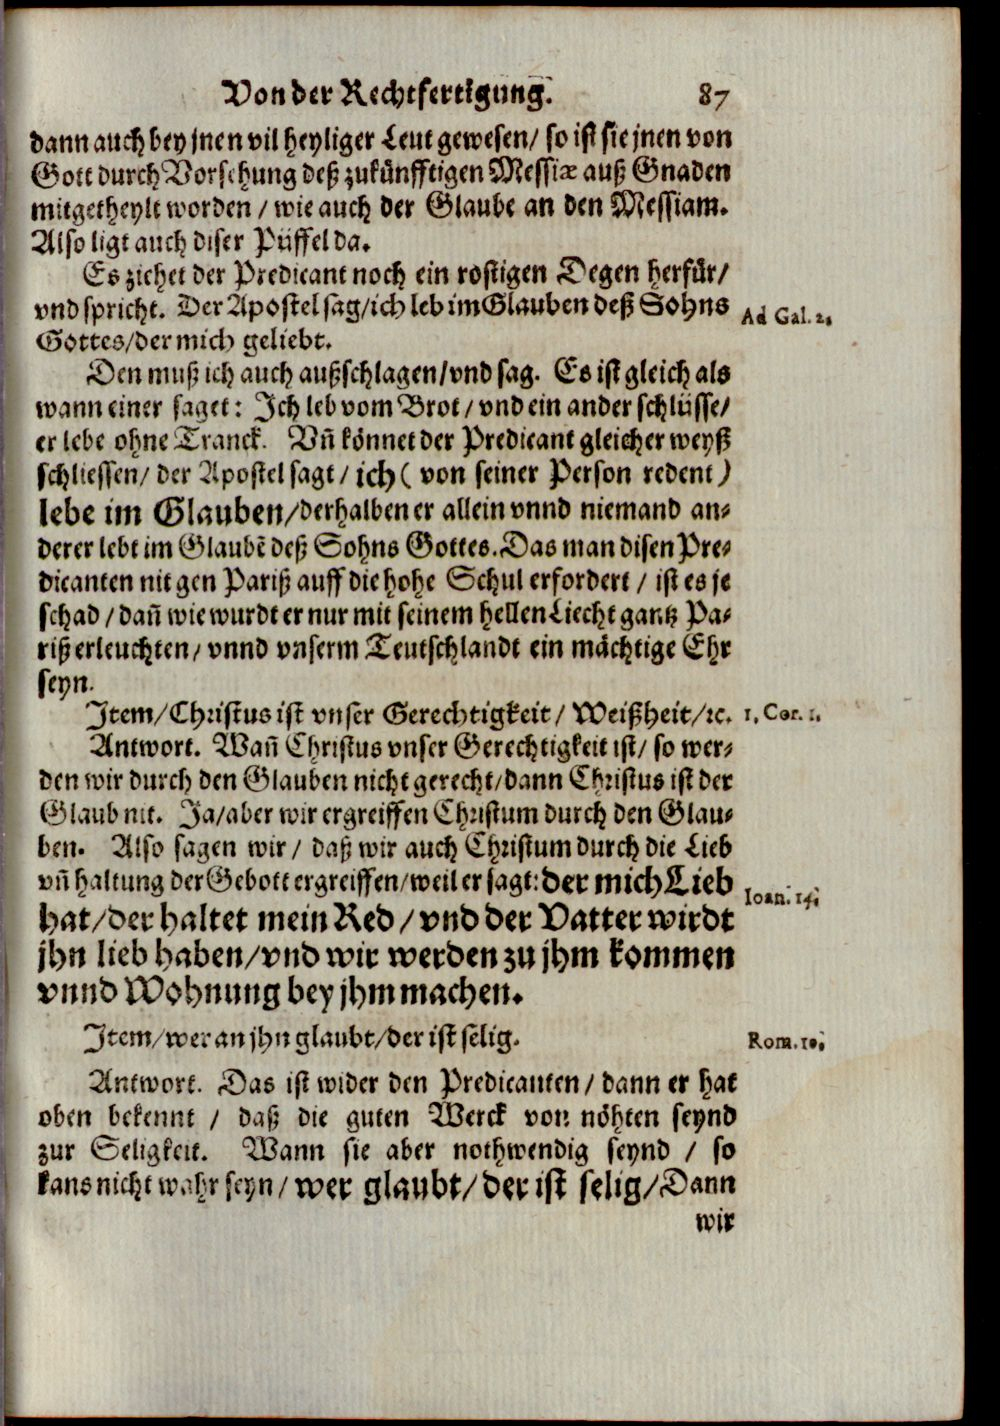 Von der Rechtfertigung. 87
dann auch bey jnen vil heyliger Leut gewesen/ so ist sie jnen von
Gott durch Vorsehung deß zukünfftigen Messiæ auß Gnaden
mitgetheylt worden / wie auch der Glaube an den Messiam.
Also ligt auch diser Püffel da.
Es ziehet der Predicant noch ein rostigen Degen herfür/
vnd spricht. Der Apostel sag/ich leb im Glauben deß Sohns
Ad Gal. 2.
Gottes/der mich geliebt.
Den muß ich auch außschlagen/vnd sag. Es ist gleich als
wann einer saget: Ich leb vom Brot / vnd ein ander schlüsse/
er lebe ohne Tranck. Vn̄ könnet der Predicant gleicher weyß
schliessen/ der Apostel sagt / ich ( von seiner Person redent )
lebe im Glauben/derhalben er allein vnnd niemand an⸗
derer lebt im Glaubē deß Sohns Gottes. Das man disen Pre⸗
dicanten nit gen Pariß auff die hohe Schul erfordert / ist es je
schad / dan̄ wie wurdt er nur mit seinem hellen Liecht gantz Pa⸗
riß erleuchten/ vnnd vnserm Teutschlandt ein mächtige Ehr
seyn.
Item/Christus ist vnser Gerechtigkeit / Weißheit/ꝛc.
1. Cor. 1.
Antwort. Wan̄ Christus vnser Gerechtigkeit ist/ so wer⸗
den wir durch den Glauben nicht gerecht/dann Christus ist der
Glaub nit. Ja/aber wir ergreiffen Christum durch den Glau⸗
ben. Also sagen wir / daß wir auch Christum durch die Lieb
vn̄ haltung der Gebott ergreiffen/weil er sagt: der mich Lieb
Ioan. 14.
hat/der haltet mein Red / vnd der Vatter wirdt
jhn lieb haben/vnd wir werden zu jhm kommen
vnnd Wohnung bey jhm machen.
Item/wer an jhn glaubt/der ist selig.
Rom. 10.
Antwort. Das ist wider den Predicanten / dann er hat
oben bekennt / daß die guten Werck von nöhten seynd
zur Seligkeit. Wann sie aber nothwendig seynd / so
kans nicht wahr seyn / wer glaubt/der ist selig/Dann
wir